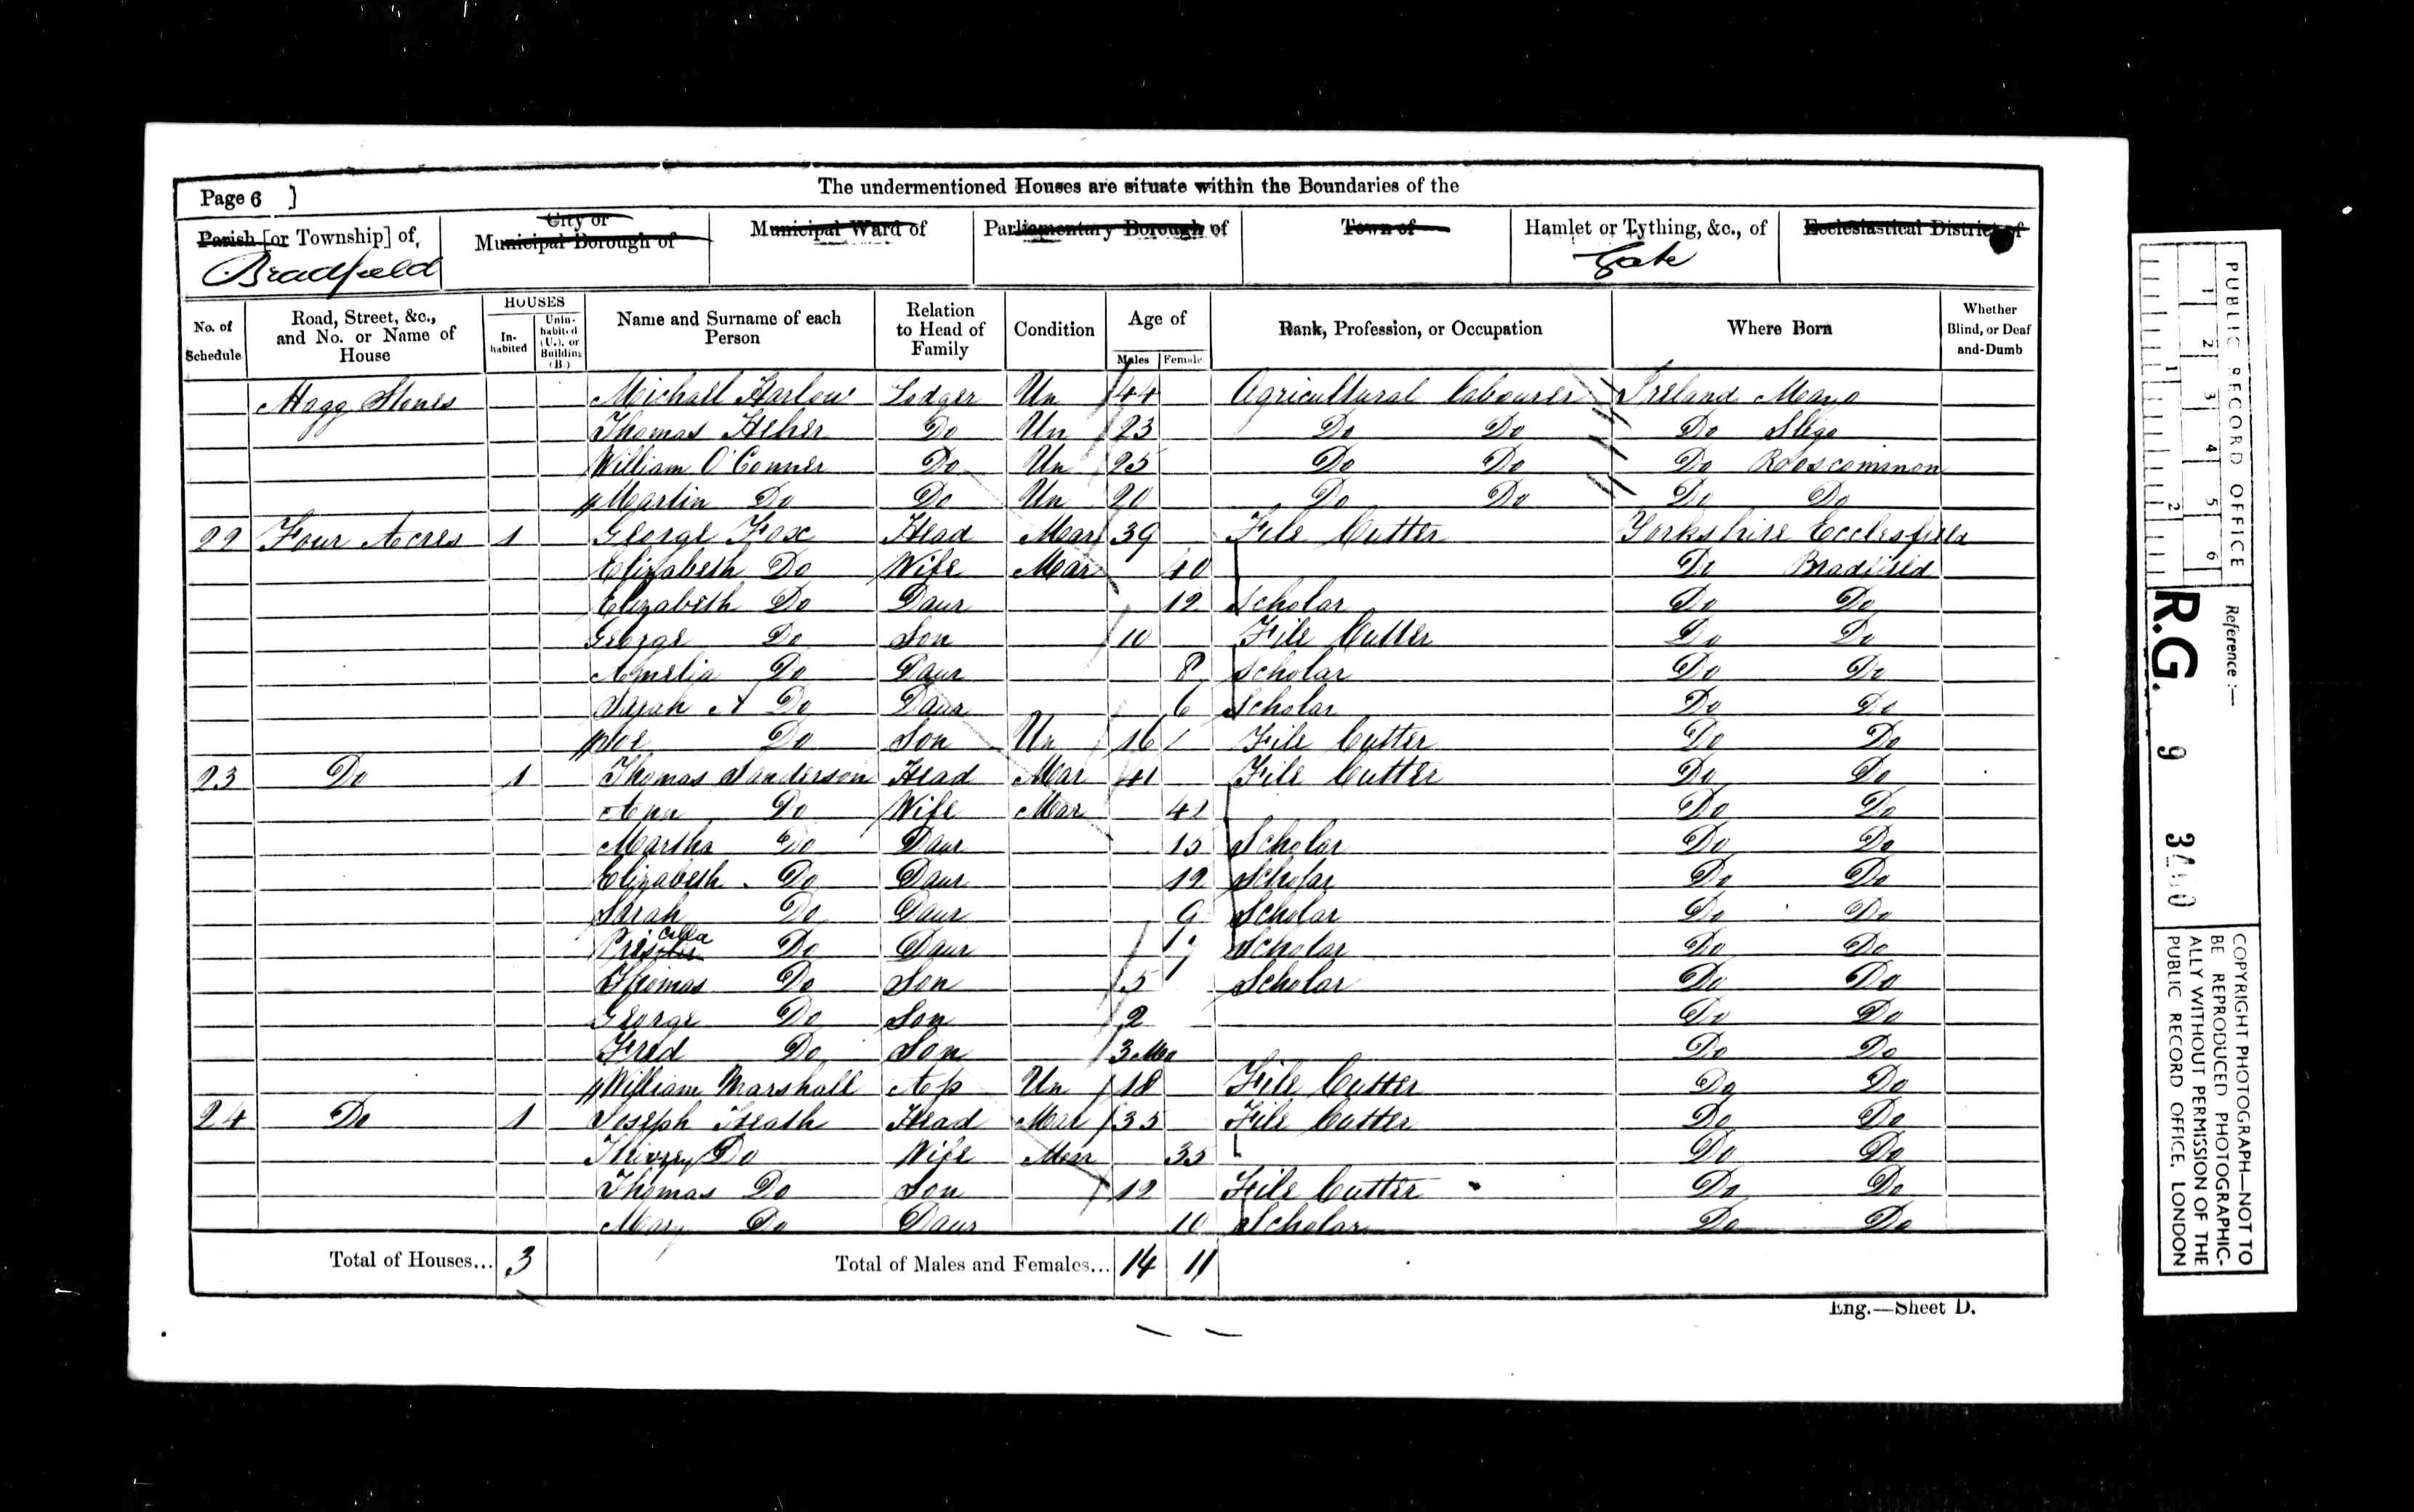 Page 6 ]
The undermentioned Houses are situate within the Boundaries of the
Parish [or Township] of,
City or
Municipal Borough of
Municipal Ward of
Parliamentary Borough of
Town of
Hamlet or Tything, &c., of
Ecclesiastical District of
Bradfield
No. of Schedule
Road, Street, &c., and No. or Name of House
HOUSES
In-habited
Unin-habited (U.), or Building (B.)
Name and Surname of each Person
Relation to Head of Family
Condition
Age of
Males
Female
Rank, Profession, or Occupation
Where Born
Whether Blind, or Deaf and-Dumb
Hagg Stones Michall Harlow Lodger Un 44 Agricultural Labourer Ireland Mayo
Thomas Do Un 23 Do Do Do Sligo
William O'Conner Do Un 25 Do Do Do Rooscommon
Martin Do Do Un 20 Do Do Do Do
22 Four Acres 1 George Fox Head Mar 39 File Cutter Yorkshire Ecclesfield
Elizabeth Do Wife Mar 40 Do Bradfield
Elizabeth Do Daur 12 Scholar Do Do
George Do Son 10 File Cutter Do Do
Amelia Do Daur 8 Scholar Do Do
Sarah A Do Daur 6 Scholar Do Do
Joe Do Son Un 16 File Cutter Do Do
23 Do 1 Thomas Sanderson Head Mar 41 File Cutter Do Do
Ann Do Wife Mar 42 Do Do
Martha Do Daur 15 Scholar Do Do
Elizabeth Do Daur 12 Scholar Do Do
Sarah Do Daur 9 Scholar Do Do
Priscilla Do Daur Scholar Do Do
Thomas Do Son 5 Scholar Do Do
George Do Son 2 Do Do
Fred Do Son 3 Mo Do Do
William Marshall Ap Un 18 File Cutter Do Do
24 Do 1 Joseph Heath Head Mar 35 File Cutter Do Do
Do Wife Mar 35 Do Do
Thomas Do Son 12 File Cutter Do Do
Mary Do Daur 10 Scholar Do Do
Total of Houses... 3
Total of Males and Females... 14 11
Eng.—Sheet D.
PUBLIC RECORD OFFICE
1 2 3 4 5 6
1 2
Reference :—
R.G. 9
COPYRIGHT PHOTOGRAPH—NOT TO
BE REPRODUCED PHOTOGRAPHIC-
ALLY WITHOUT PERMISSION OF THE
PUBLIC RECORD OFFICE, LONDON